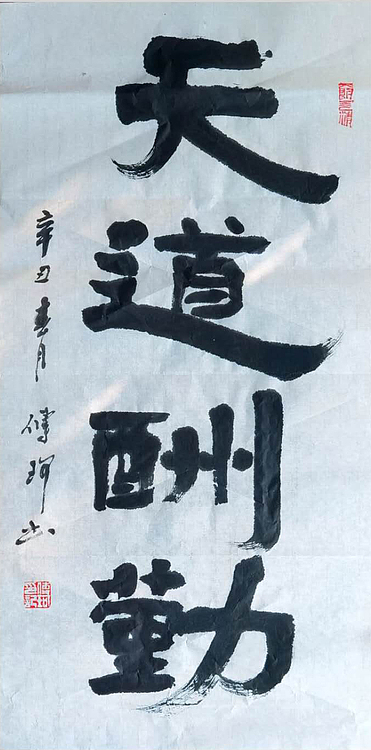 天道酬勤
辛丑春月 傅 书